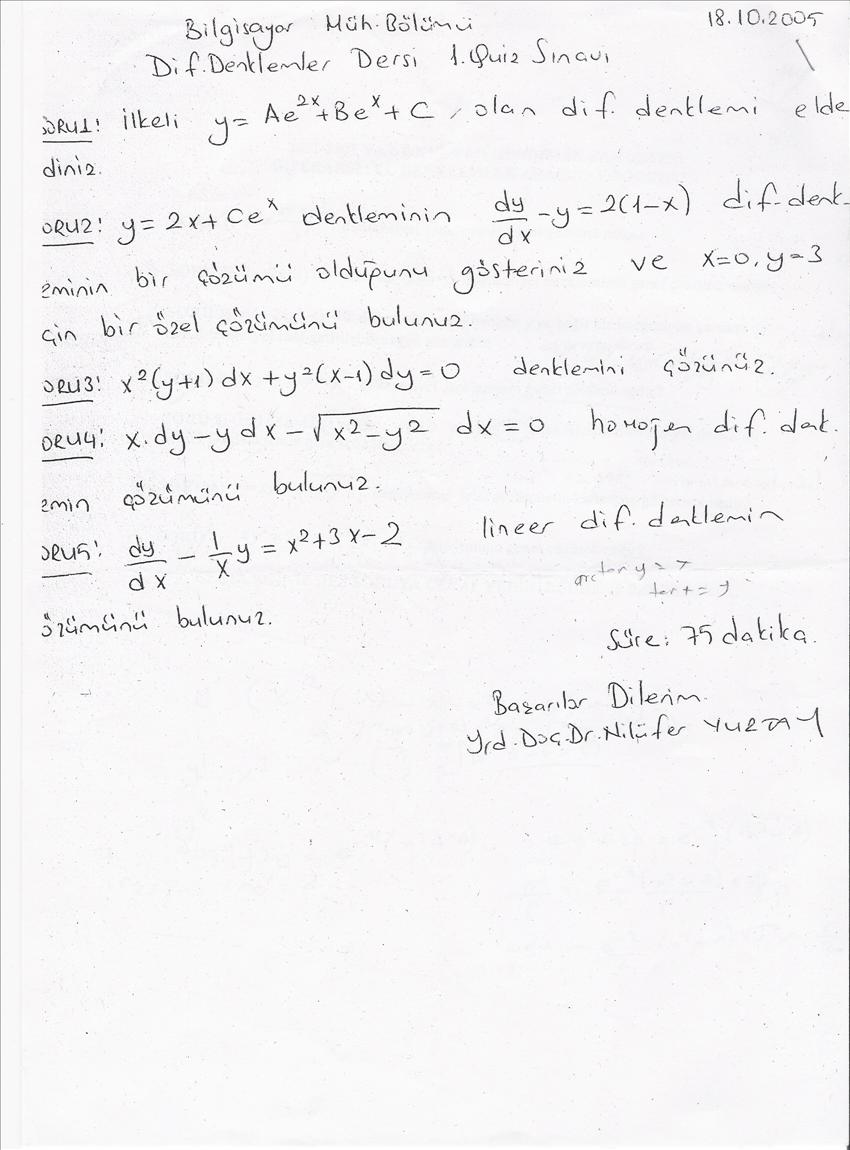 Bilgisayar Müh. Bölümü 18.10.2005
Dif. Denklemler Dersi 1. Quiz Sınavı
SORU1: İlkeli y = Ae^{2x} + Be^x + C, olan dif. denklemi elde
diniz.
ORU2: y = 2x + Ce^x denkleminin dy/dx - y = 2(1-x) dif. denk-
eminin bir çözümü olduğunu gösteriniz ve x=0, y=3
çin bir özel çözümünü bulunuz.
ORU3: x²(y+1) dx + y²(x-1) dy = 0 denklemini çözünüz.
ORU4: x.dy - y dx - √(x² - y²) dx = 0 homojen dif. denk.
emin çözümünü bulunuz.
ORU5: dy/dx - 1/x y = x² + 3x - 2 lineer dif. denklemin
özümünü bulunuz.
Süre: 75 dakika.
Başarılar Dilerim.
Yrd. Doç. Dr. Nilüfer YURTAY